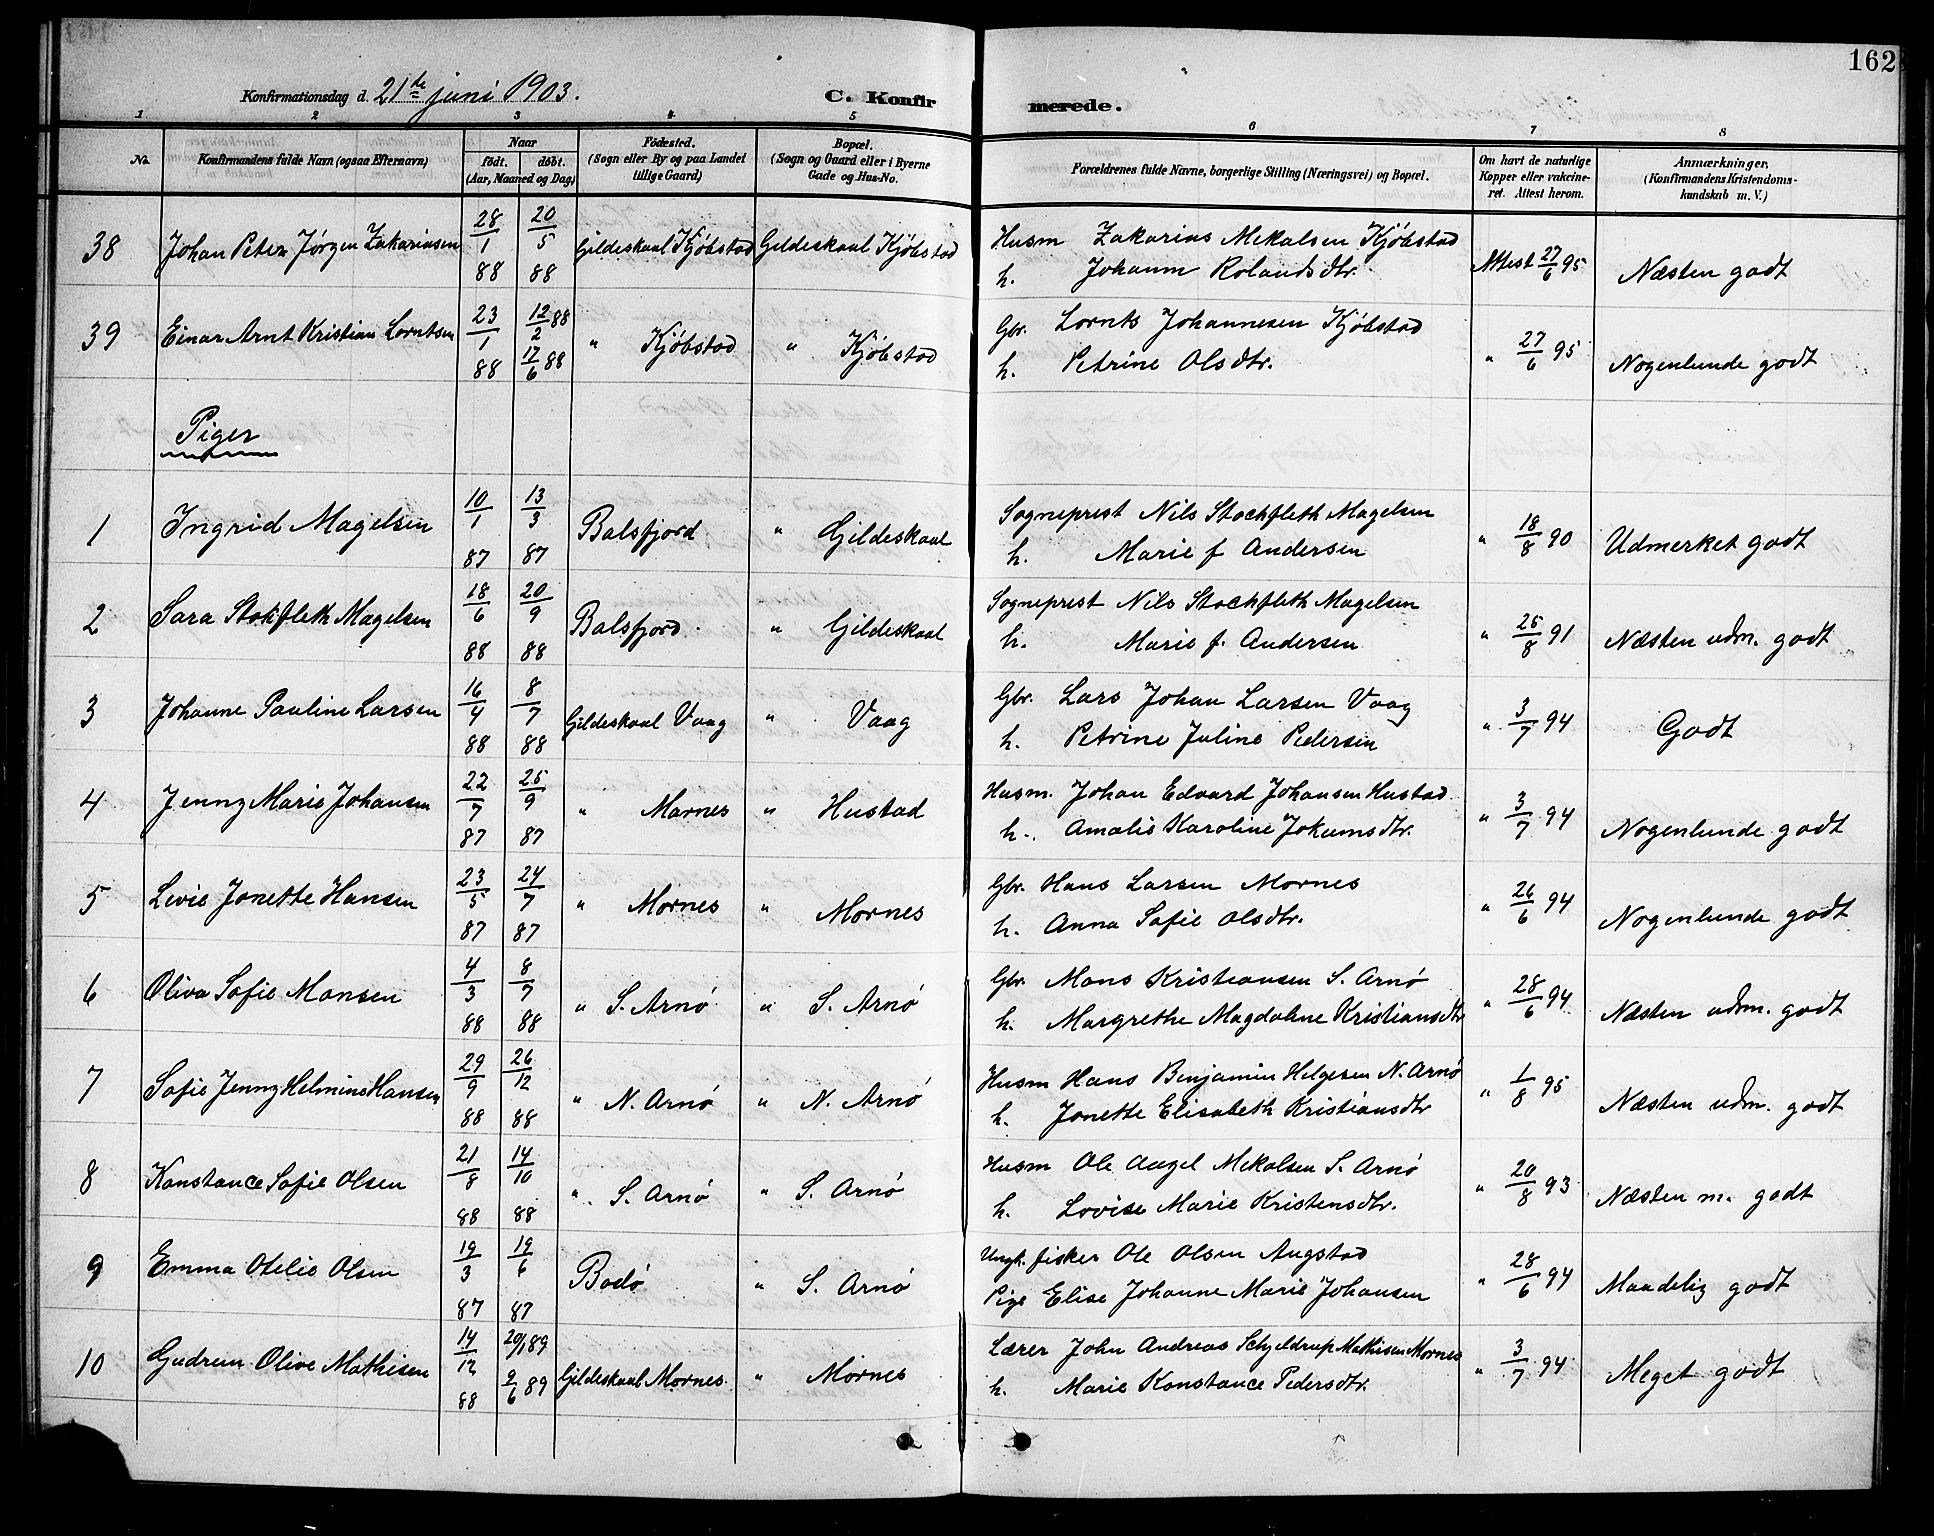 162
Konfirmationsdag d. 21de juni 1903. C. Konfirmerede.
1 2 3 4 5 6 7 8
No. Konfirmandens fulde Navn (ogsaa Efternavn) Naar födt. döbt. (Aar, Maaned og Dag) Födested. (Sogn eller By og paa Landet tillige Gaard) Bopæl. (Sogn og Gaard eller i Byerne Gade og Hus-No. Forældrenes fulde Navne, borgerlige Stilling (Næringsvei) og Bopæl. Om havt de naturlige Kopper eller vakcineret. Attest herom. Anmærkninger. (Konfirmandens Kristendomskundskab m. V.)
38 Johan Peter Jørgen Zakariasen 28/1 88 20/5 88 Gildeskaal Kjøbstad Gildeskaal Kjøbstad Husm Zakarias Mekalsen Kjøbstad Attest 27/6 95 Næsten godt
h. Johanna Rolandsdtr.
39 Einar Arnt Kristian Lorntsen 23/1 88 12/2 88 17/6 88 " Kjøbstad " Kjøbstad Gbr. Lornts Johannesen Kjøbstad " 27/6 95 Nogenlunde godt
h. Petrine Olsdtr.
Piger
1 Ingrid Magelsen 10/1 87 13/3 87 Balsfjord " Gildeskaal Sogneprest Nils Stockfleth Magelsen " 18/8 90 Udmerket godt
h. Marie f Andersen
2 Sara Stokfleth Magelsen 18/6 88 20/9 88 Balsfjord. " Gildeskaal Sogneprest Nils Stockfleth Magelsen " 25/8 91 Næsten udm. godt
h. Marie f. Andersen
3 Johanne Pauline Larsen 16/4 88 8/7 88 Gildeskaal Vaag " Vaag Gbr. Lars Johan Larsen Vaag " 3/7 94 Godt
h. Petrine Juline Pedersen
4 Jenny Marie Johansen 22/7 87 25/9 87 " Marnes " Hustad Husm. Johan Edvard Johansen Hustad " 3/7 94 Nogenlunde godt
h. Amalie Karoline Jokumsdtr.
5 Levie Jonette Hansen 23/5 87 24/7 87 " Mornes " Mornes Gbr. Hans Larsen Mornes " 26/6 94 Nogenlunde godt
h. Anna Sofie Olsdtr.
6 Oliva Sofie Monsen 4/3 88 8/7 88 " S. Arnø " S. Arnø Gbr. Mons Kristiansen S. Arnø " 28/6 94 Næsten udm. godt
h. Margrethe Magdalene Kristiansdtr
7 Sofie Jenny Helmine Hansen 29/9 88 26/12 88 " N. Arnø " N. Arnø Husm Hans Benjamin Helgesen N. Arnø " 1/8 95 Næsten udm. godt
h. Jonette Elisabeth Kristiansdtr
8 Konstance Sofie Olsen 21/8 88 14/10 88 " S. Arnø " S. Arnø Husm Ole Angel Mekalsen S. Arnø " 20/8 93 Næsten m. godt
h. Lovise Marie Kristensdtr.
9 Emma Otelie Olsen 19/3 87 19/6 87 Bodø " S. Arnø Ungk. fisker Ole Olsen Augstad " 28/6 94 Maadelig godt
Pige Elise Johanne Marie Johansen
10 Gudrun Olive Mathisen 14/12 88 20/1 89 2/6 89 Gildeskaal Mornes. " Mornes Lærer John Andreas Schjeldrup Mathisen Mornes " 3/7 94 Meget godt
h. Marie Konstance Pedersdtr.